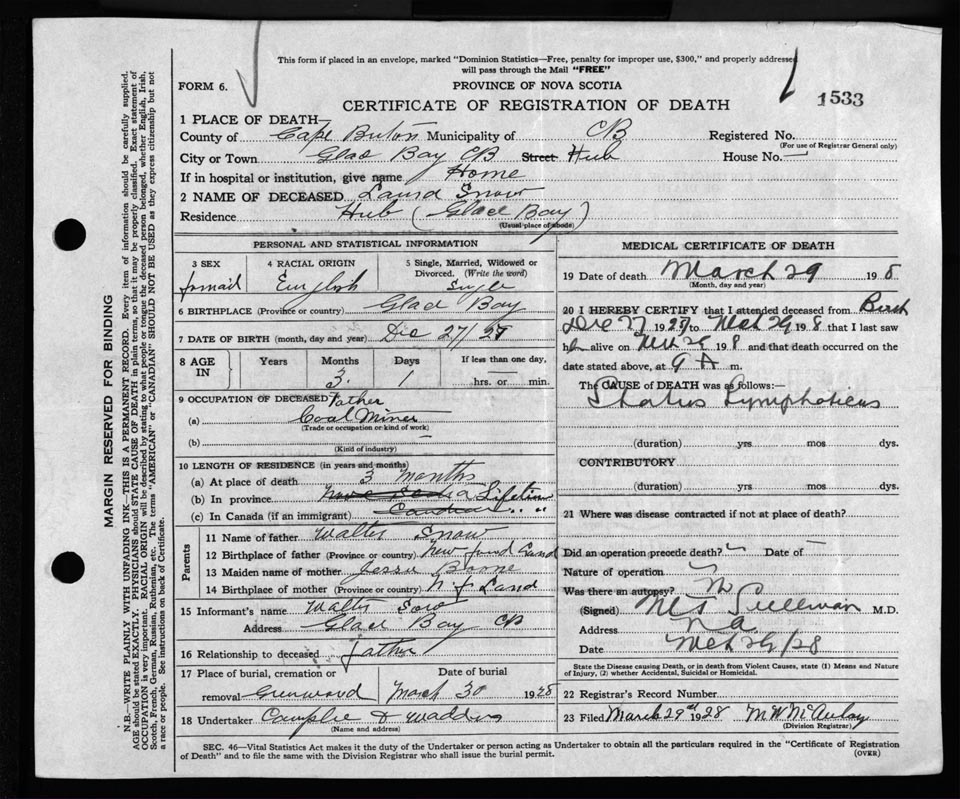 This form if placed in an envelope, marked "Dominion Statistics—Free, penalty for improper use, $300," and properly addressed
will pass through the Mail "FREE"
FORM 6.
PROVINCE OF NOVA SCOTIA
1533
CERTIFICATE OF REGISTRATION OF DEATH
1 PLACE OF DEATH—
County of Cape Breton Municipality of CB Registered No.
(For use of Registrar General only)
City or Town Glac Bay CB Street Hub House No. —
If in hospital or institution, give name Home
2 NAME OF DECEASED Laura Snow
Residence Hub (Glace Bay)
(Usual place of abode)
PERSONAL AND STATISTICAL INFORMATION
3 SEX 4 RACIAL ORIGIN 5 Single, Married, Widowed or
Divorced. (Write the word)
English Single
6 BIRTHPLACE (Province or country) Glac Bay
7 DATE OF BIRTH (month, day and year) Dec 27/27
8 AGE IN Years Months Days If less than one day,
3 1 hrs. or min.
9 OCCUPATION OF DECEASED Father
(a) Coal Miner
(Trade or occupation or kind of work)
(b) —
(Kind of industry)
10 LENGTH OF RESIDENCE (in years and months)
(a) At place of death 3 months
(b) In province Nova Scotia Lifetime
(c) In Canada (if an immigrant) Canadian " "
Parents
11 Name of father Walter Snow
12 Birthplace of father (Province or country) New found Land
13 Maiden name of mother Jessie
14 Birthplace of mother (Province or country) N f Land
15 Informant's name Walter
Address Glace Bay CB
16 Relationship to deceased father
17 Place of burial, cremation or Date of burial
removal Greenwood March 30 1928
18 Undertaker
(Name and address)
MEDICAL CERTIFICATE OF DEATH
19 Date of death March 29 19 8
(Month, day and year)
20 I HEREBY CERTIFY that I attended deceased from Birth
Dec 27 1927 to Mch 29 19 8 that I last saw
h alive on 19 8 and that death occurred on the
date stated above, at 9 A m.
The CAUSE of DEATH was as follows:—
Status Lymphaticus
(duration) yrs mos dys.
CONTRIBUTORY
(duration) yrs mos dys.
21 Where was disease contracted if not at place of death?
Did an operation precede death? Date of —
Nature of operation
Was there an autopsy? No
(Signed) Sullivan M.D.
Address
Date Mch 29/28
State the Disease causing Death, or in death from Violent Causes, state (1) Means and Nature
of Injury, (2) whether Accidental, Suicidal or Homicidal.
22 Registrar's Record Number
23 Filed March 29th 1928 M W McAulay
(Division Registrar)
SEC. 46—Vital Statistics Act makes it the duty of the Undertaker or person acting as Undertaker to obtain all the particulars required in the "Certificate of Registration
of Death" and to file the same with the Division Registrar who shall issue the burial permit. (OVER)
MARGIN RESERVED FOR BINDING
N.B.—WRITE PLAINLY WITH UNFADING INK—THIS IS A PERMANENT RECORD. Every item of information should be carefully supplied.
AGE should be stated EXACTLY. PHYSICIANS should STATE CAUSE OF DEATH in plain terms, so that it may be properly classified. Exact statement of
OCCUPATION is very important. RACIAL ORIGIN will be described by stating to what people or tongue the deceased person belonged, whether English, Irish,
Scotch, French, German, Russian, Ruthenian, etc. The terms "AMERICAN" or "CANADIAN" SHOULD NOT BE USED as they express citizenship but not
a race or people. See instructions on back of Certificate.